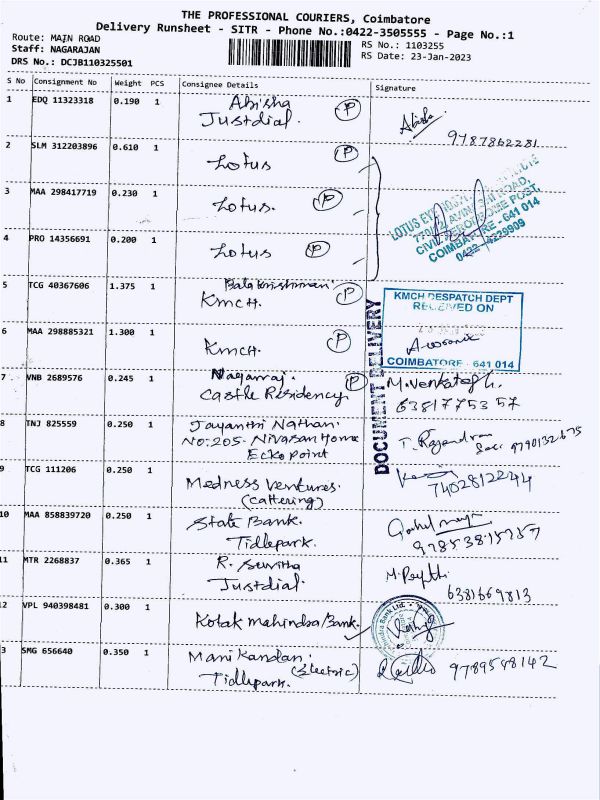 THE PROFESSIONAL COURIERS, Coimbatore
Delivery Runsheet - SITR - Phone No.:0422-3505555 - Page No.:1
Route: MAIN ROAD
Staff: NAGARAJAN
DRS No.: DCJB110325501
RS No.: 1103255
RS Date: 23-Jan-2023
S No Consignment No Weight PCS Consignee Details Signature
1 EDQ 11323318 0.190 1 Abisha
Justdial. P
9787862281
2 SLM 312203896 0.610 1 Lotus P
3 MAA 298417719 0.230 1 Lotus. P
4 PRO 14356691 0.200 1 Lotus P
CIVIL AERODROME POST,
COIMBATORE - 641 014
5 TCG 40367606 1.375 1 Balakrishnan.
KMCH. P
KMCH DESPATCH DEPT
RECEIVED ON
COIMBATORE - 641 014
DOCUMENT DELIVERY
6 MAA 298885321 1.300 1 KMCH. P
7 VNB 2689576 0.245 1 Nagarraj.
Castle Residency. P
M. Venkatesh.
63817 753 57
8 TNJ 825559 0.250 1 Jayanthi Nathan.
No:205. Nivasan Home
Ecko point
T. Rajendran
9790132675
9 TCG 111206 0.250 1 Medness Ventures.
(Cattering)
7402812244
10 MAA 858839720 0.250 1 State Bank.
Tidlepark.
11 MTR 2268837 0.365 1 R. Suvitha
Justdial.
6381669813
12 VPL 940398481 0.300 1 Kotak Mahindra Bank.
13 SMG 656640 0.350 1 Manikandan.
(Electric)
Tidlepark.
9789598142